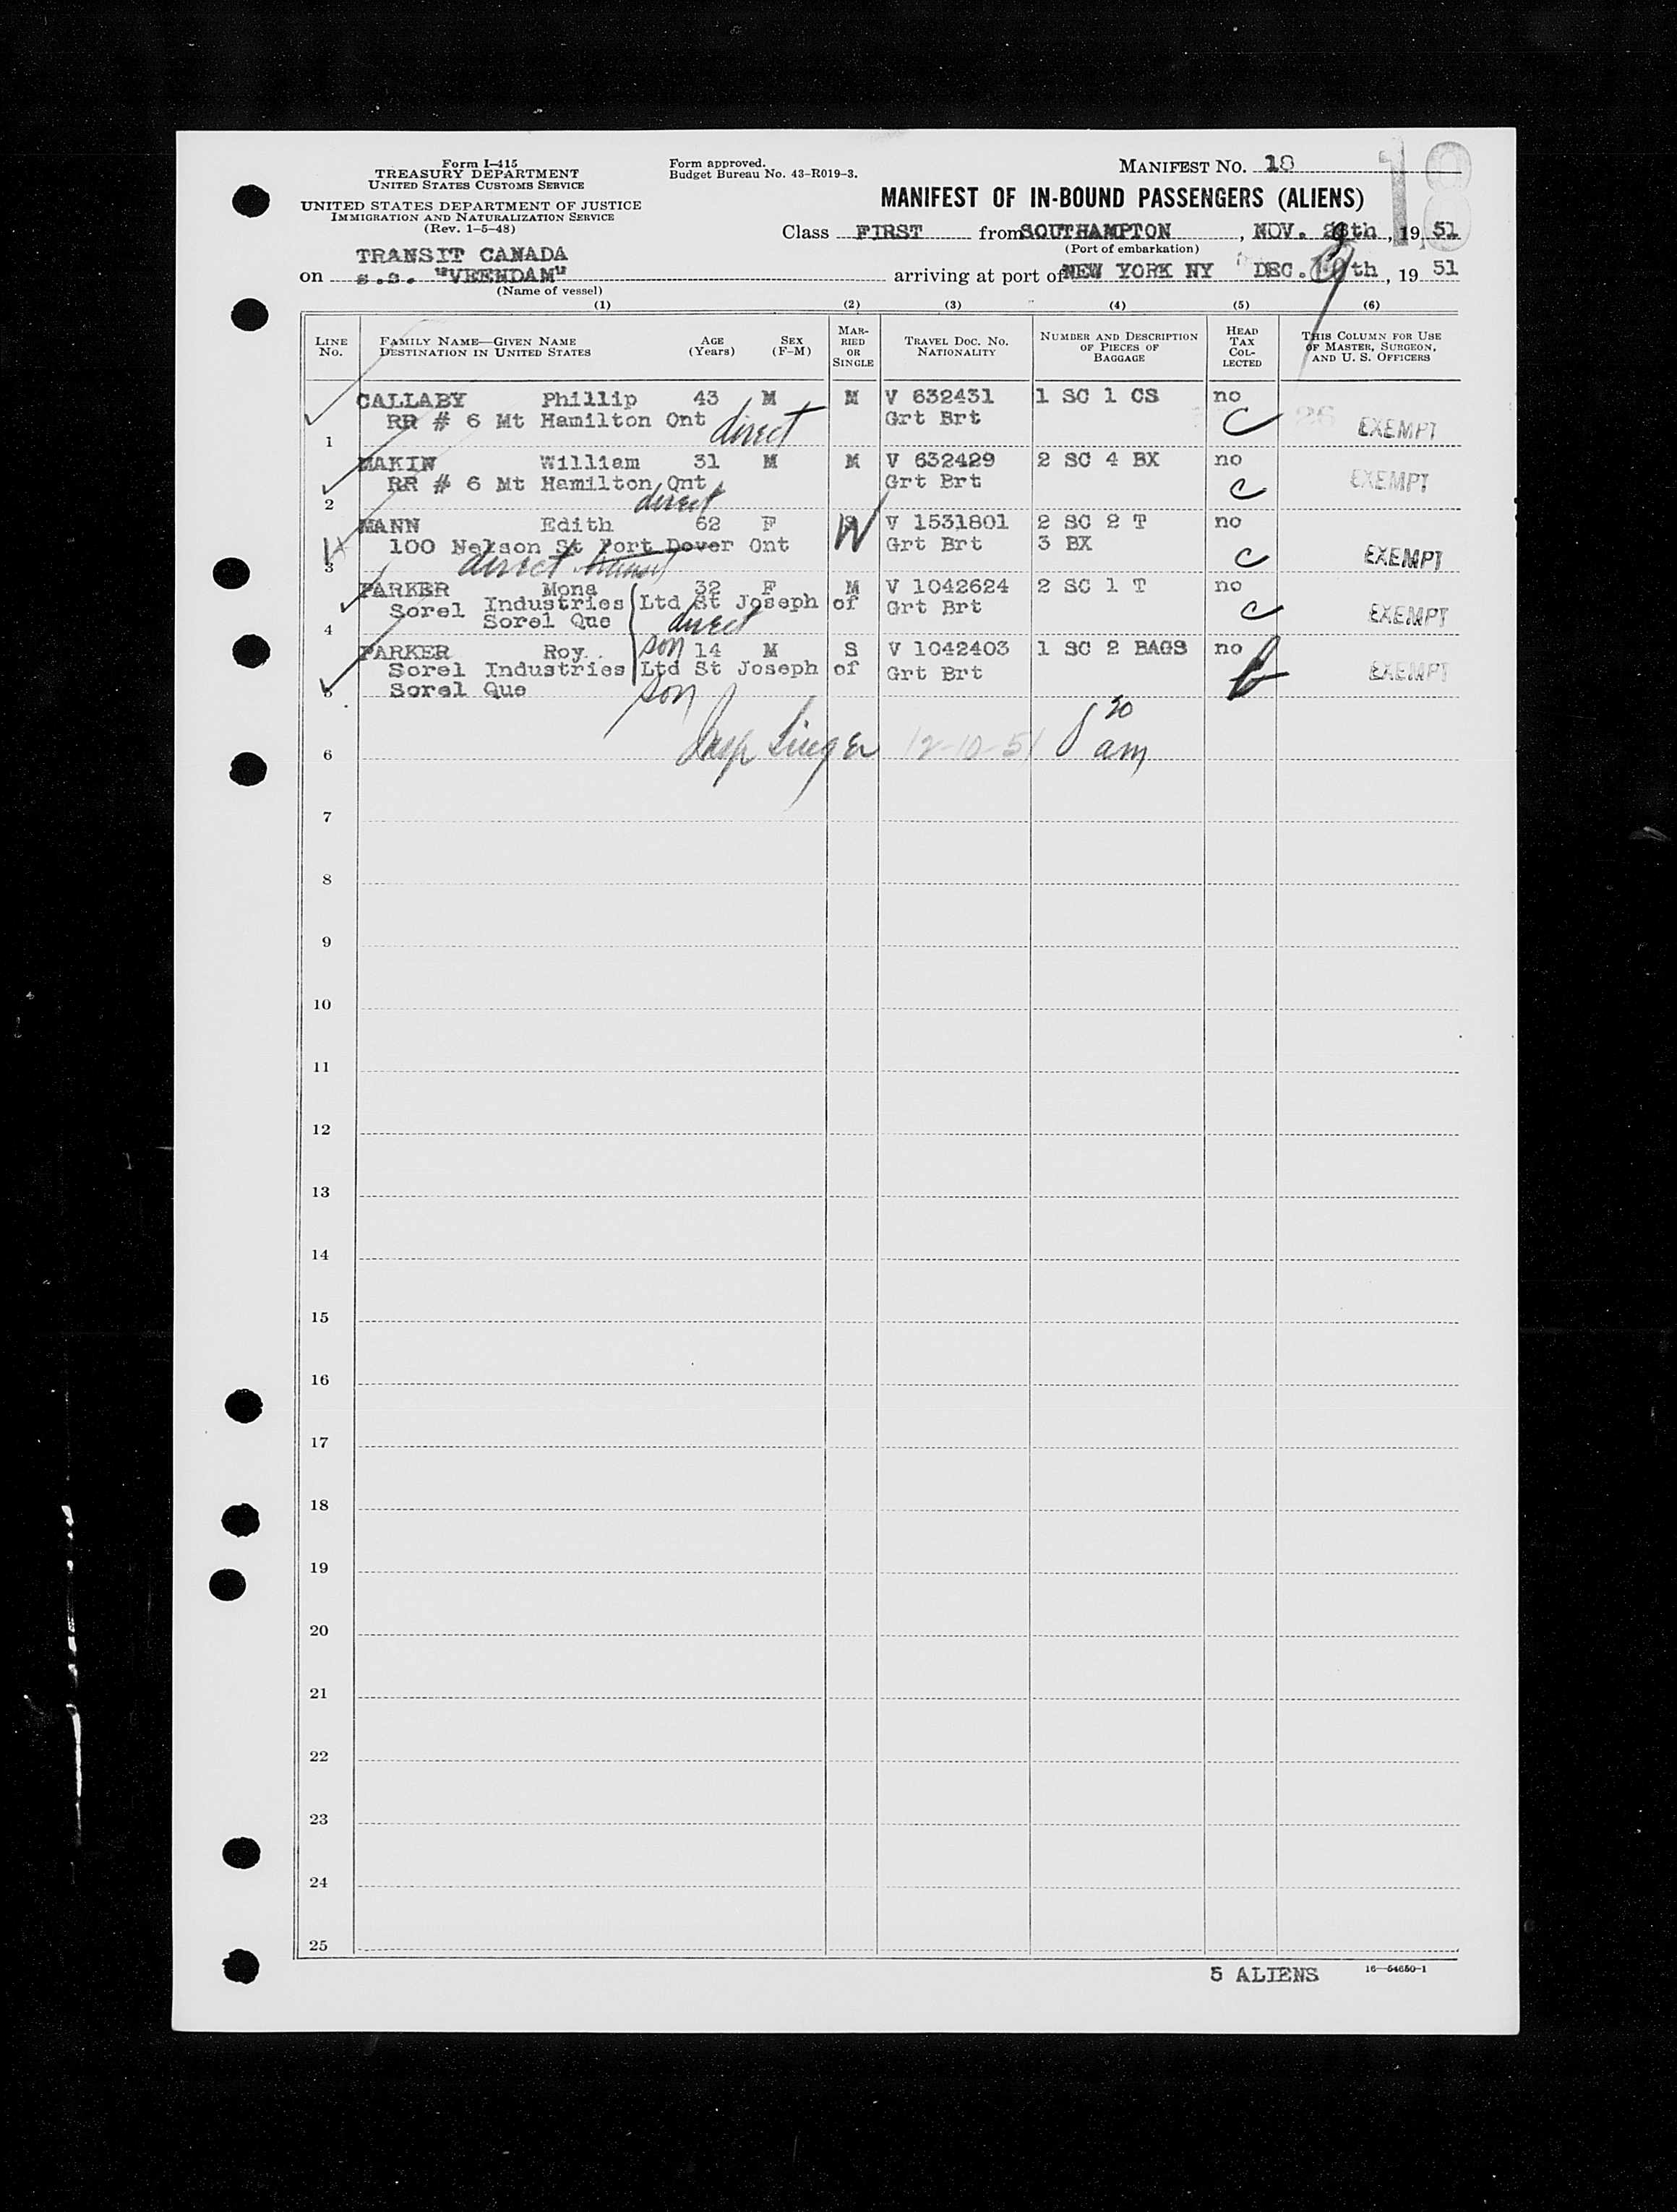 Form I-415
TREASURY DEPARTMENT
UNITED STATES CUSTOMS SERVICE
UNITED STATES DEPARTMENT OF JUSTICE
IMMIGRATION AND NATURALIZATION SERVICE
(Rev. 1-5-48)
Form approved.
Budget Bureau No. 43-R019-3.
MANIFEST NO. 18
18
MANIFEST OF IN-BOUND PASSENGERS (ALIENS)
Class FIRST from SOUTHAMPTON, NOV. th, 19 51
(Port of embarkation)
TRANSIT CANADA
on s.s. "VEENDAM" arriving at port of NEW YORK NY DEC. th, 19 51
(Name of vessel)
(1) (2) (3) (4) (5) (6)
LINE NO. FAMILY NAME—GIVEN NAME DESTINATION IN UNITED STATES AGE (Years) SEX (F-M) MARRIED OR SINGLE TRAVEL DOC. NO. NATIONALITY NUMBER AND DESCRIPTION OF PIECES OF BAGGAGE HEAD TAX COLLECTED THIS COLUMN FOR USE OF MASTER, SURGEON, AND U. S. OFFICERS
CALLABY Phillip 43 M M V 632431 1 SC 1 CS no
RR # 6 Mt Hamilton Ont direct Grt Brt C EXEMPT
1
MAKIN William 31 M M V 632429 2 SC 4 BX no
RR # 6 Mt Hamilton Ont Grt Brt C EXEMPT
2 direct
MANN Edith 62 F W V 1531801 2 SC 2 T no
100 Nelson St Port Dover Ont Grt Brt 3 BX C EXEMPT
3 direct transit
PARKER Mona 32 F M V 1042624 2 SC 1 T no
Sorel Industries Ltd St Joseph of Grt Brt C EXEMPT
Sorel Que direct
4
PARKER Roy son 14 M S V 1042403 1 SC 2 BAGS no
Sorel Industries Ltd St Joseph of Grt Brt EXEMPT
5 Sorel Que son
Insp Singer 12-10-51 8 20 am
6
7
8
9
10
11
12
13
14
15
16
17
18
19
20
21
22
23
24
25
5 ALIENS 16—54650-1